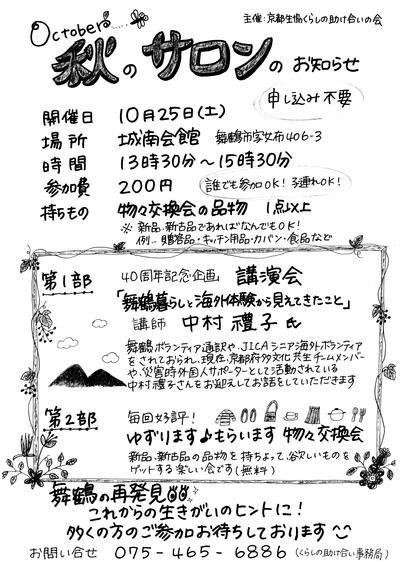 October......
主催：京都生協くらしの助け合いの会
秋のサロンのお知らせ
申し込み不要
開催日 10月25日(土)
場所 城南会館 舞鶴市字女布406-3
時間 13時30分〜15時30分
参加費 200円 誰でも参加OK！子連れOK！
持ちもの 物々交換会の品物 1点以上
※ 新品、新古品であればなんでもOK！
例… 贈答品・キッチン用品・カバン・食品など
第1部 40周年記念企画 講演会
「舞鶴暮らしと海外体験から見えてきたこと」
講師 中村禮子氏
舞鶴ボランティア通訳や、JICAシニア海外ボランティア
をされておられ、現在、京都府多文化共生チームメンバー
や、災害時外国人サポーターとして活動されている
中村禮子さんをお迎えしてお話をしていただきます
第2部 毎回好評！
ゆずります♪もらいます 物々交換会
新品、新古品の品物を持ちよって、欲しいものを
ゲットする楽しい会です(無料)
舞鶴の再発見
これからの生きがいのヒントに！
多くの方のご参加お待ちしております
お問い合せ 075-465-6886 (くらしの助け合い事務局)